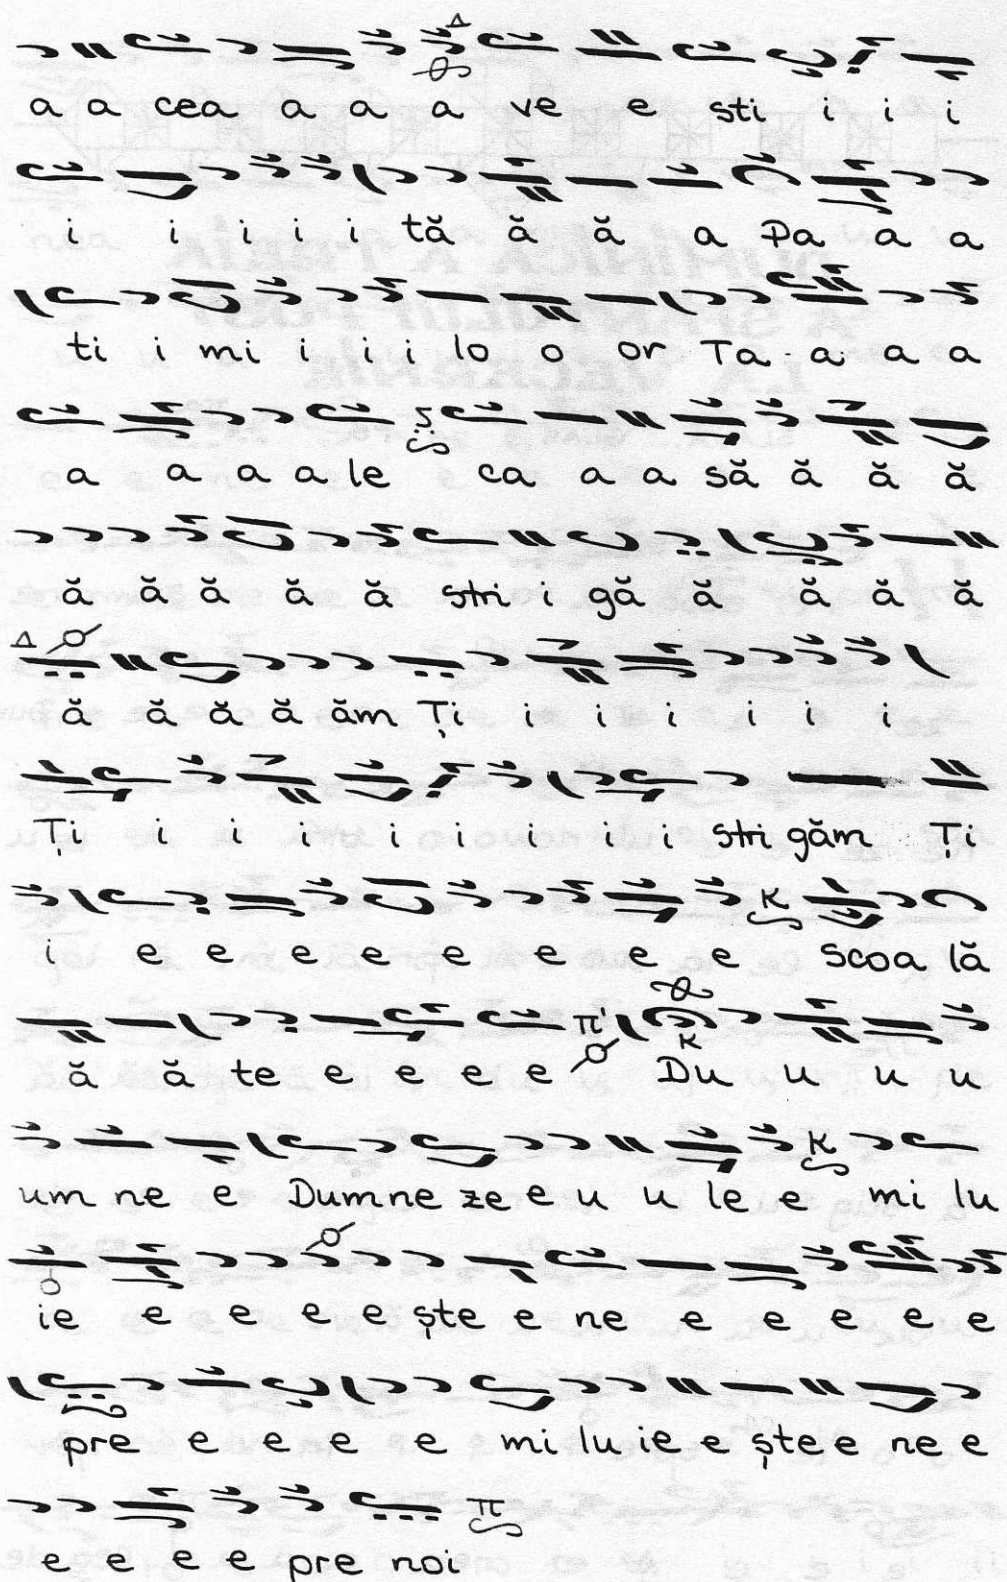 a a cea a a a ve e sti i i i
i i i i i tă ă ă a Pa a a
ti i mi i i i lo o or Ta a a a
a a a a le ca a a să ă ă ă
ă ă ă ă ă stri i gă ă ă ă ă
ă ă ă ă ăm Ți i i i i i i
Ți i i i i i i i i stri găm Ți
i e e e e e e e e scoa lă
ă ă te e e e e Du u u u
um ne e Dumne ze e u u le e mi lu
ie e e e e ște e ne e e e e e
pre e e e e mi lu ie e ște e ne e
e e e e pre noi